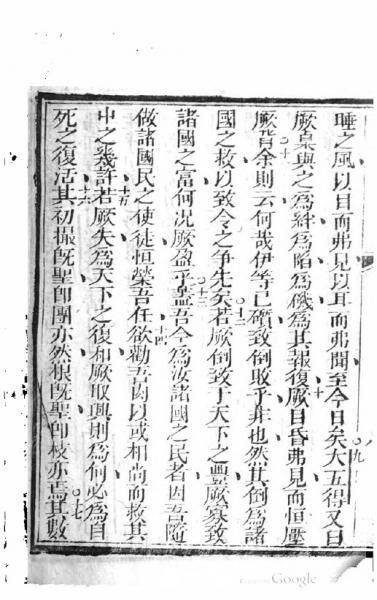 睡之風以目而弗見以耳而弗聞至今日矣大五得又曰
厥桌與之為絆為陷為磯為其報復厥目昏弗見而恒壓
厥背余則云何哉伊等已躓致倒敗乎非也然其倒為諸
國之救以致令之争先矣若厥倒致于天下之豐厥寡致
諸國之富何况厥盈乎盖吾今為汝諸國之民者因吾隨
做諸國民之使徒恒榮吾任欲勸吾肉以或相尚而救其
中之幾許若厥失為天下之復和厥取與則為何必為自
死之復活其初撮既聖即團亦然根既聖即枝亦焉其數
九
十
十一
十二
十三
十四
十五
十六
十七
Google